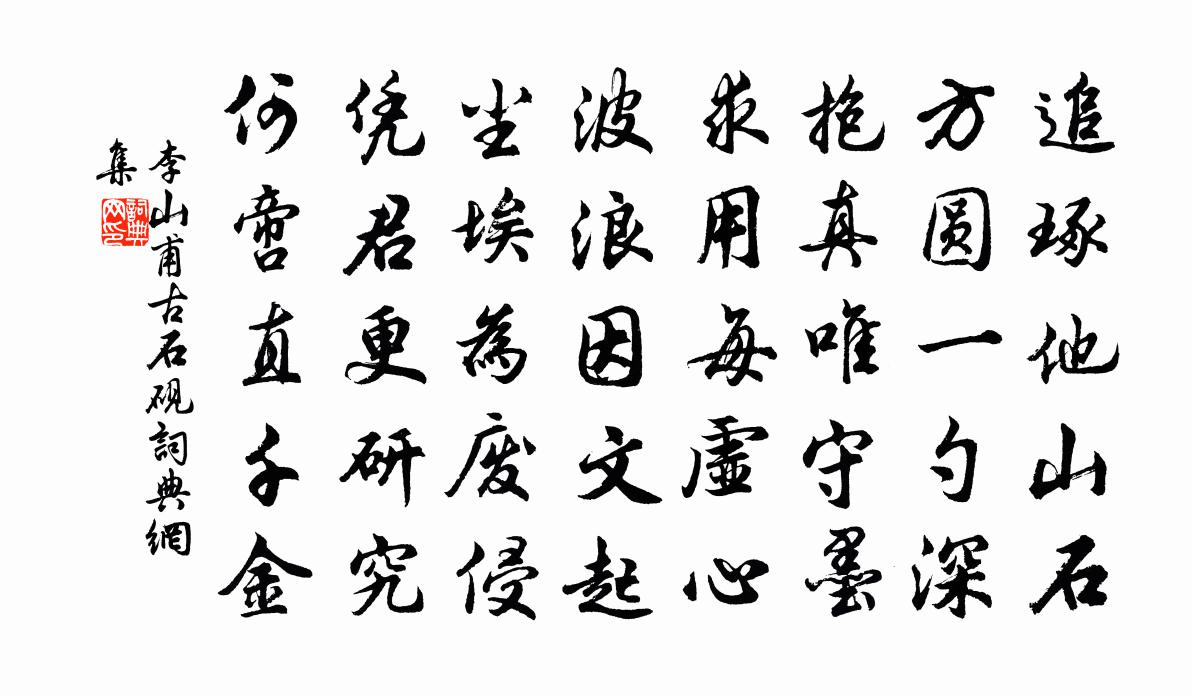 追琢他山石
方圆一勺深
抱真唯守墨
求用每虚心
波浪因文起
尘埃為废侵
凭君更研究
何啻直千金
李山甫古石砚詞典網
集
詞典
网印